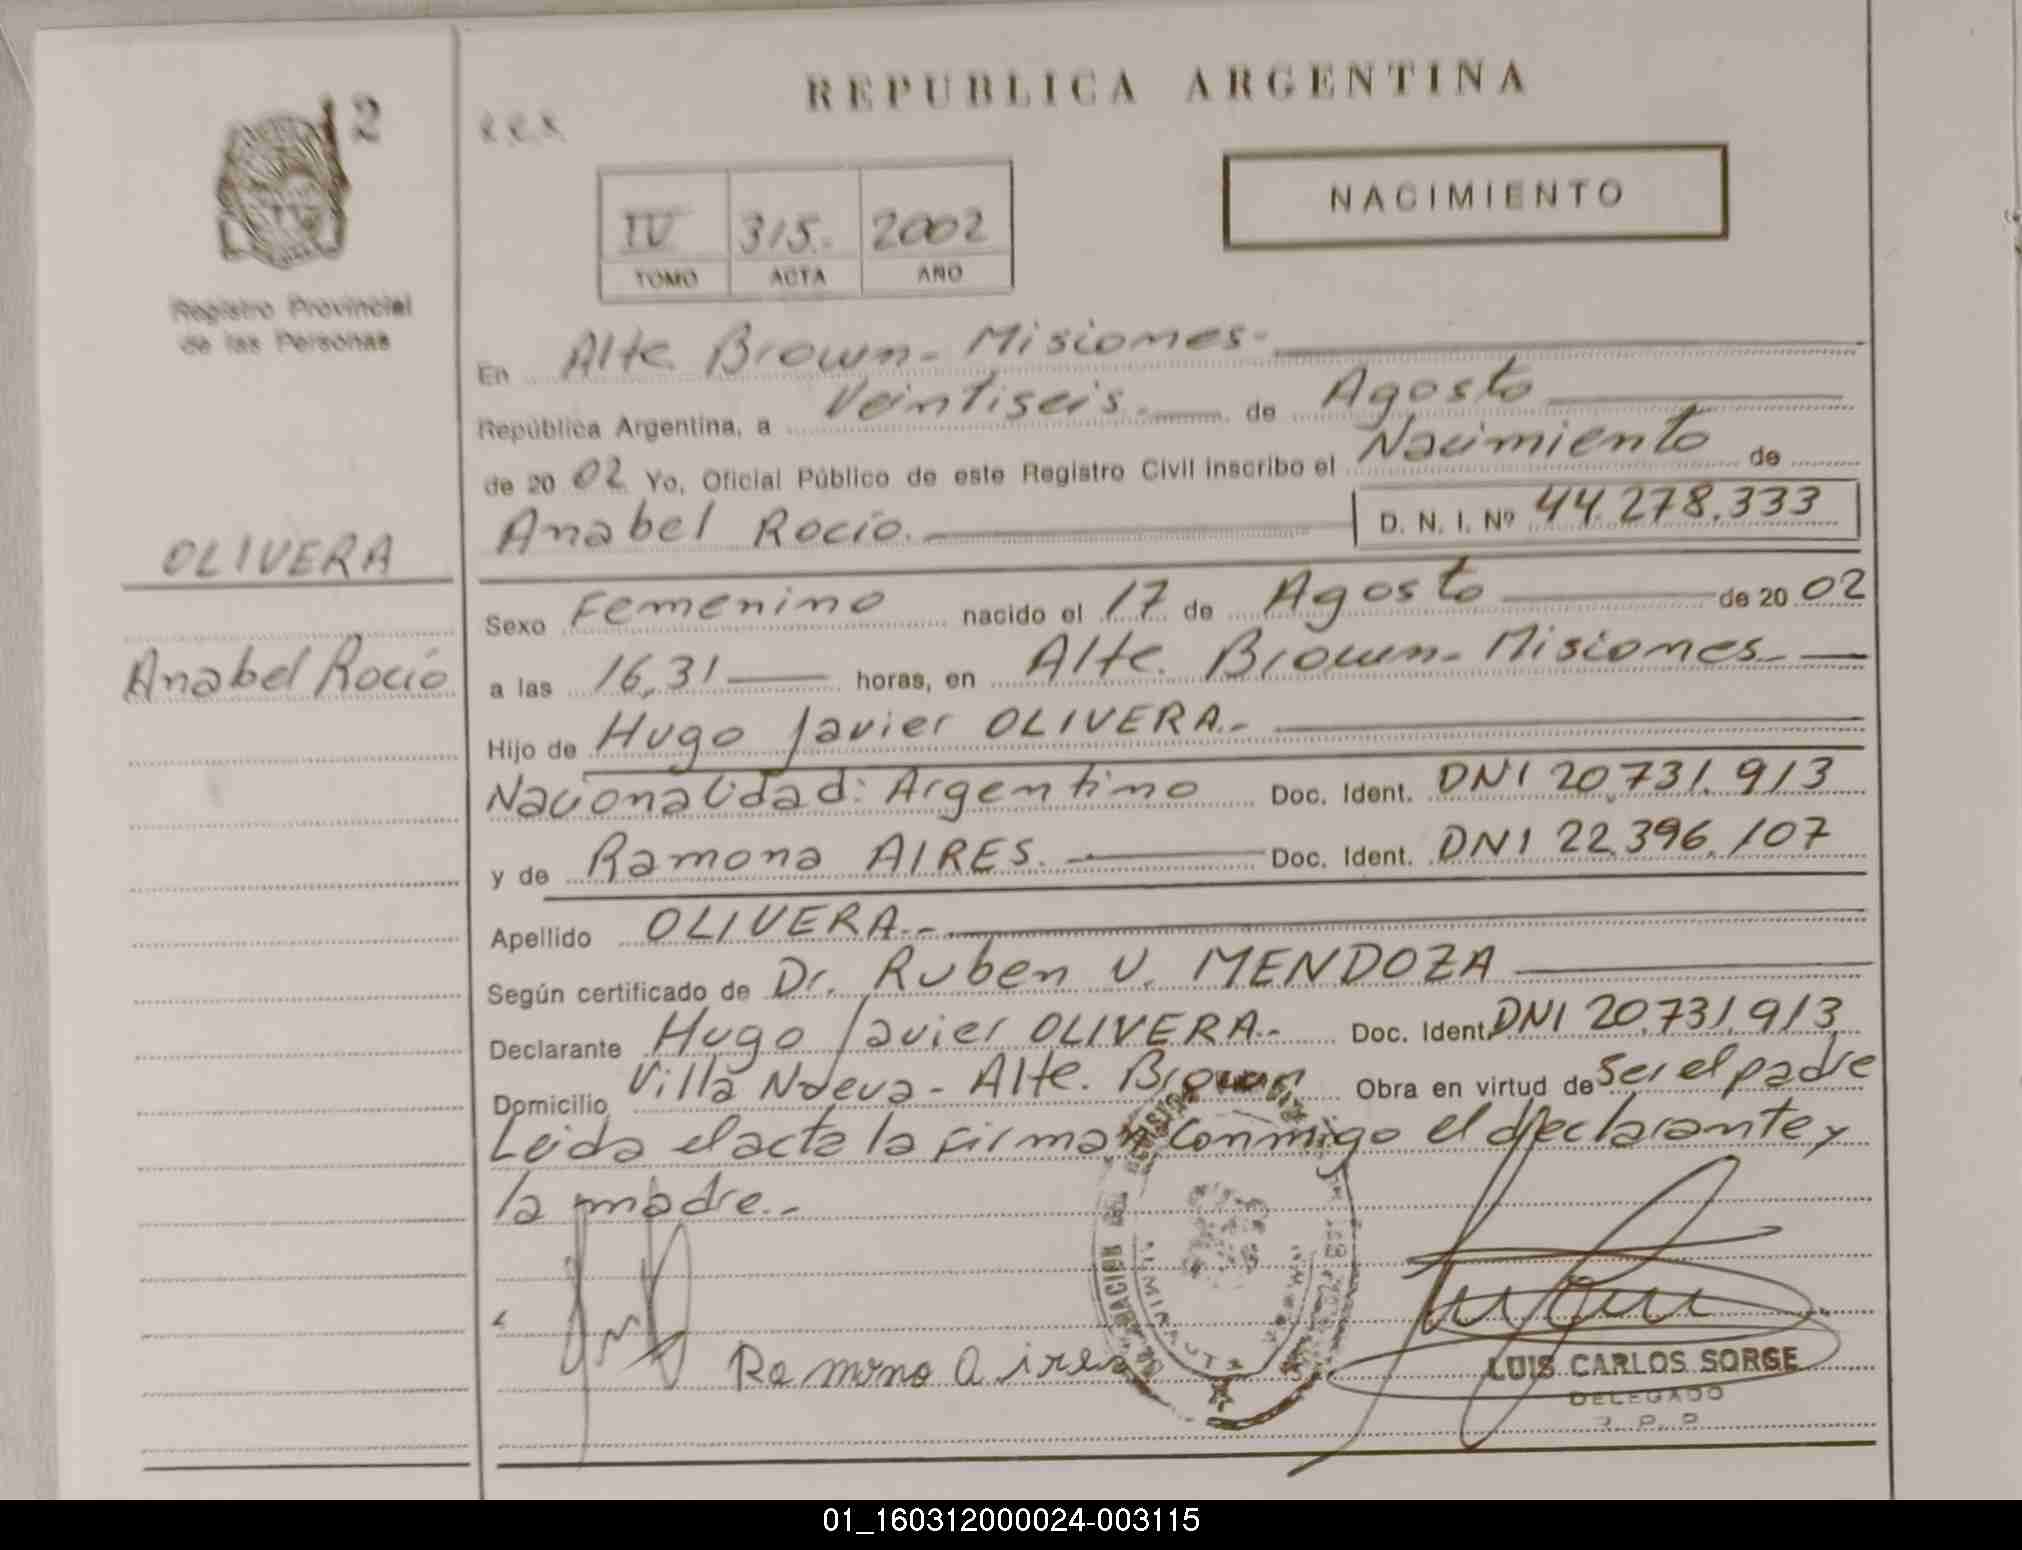 REPUBLICA ARGENTINA
2
NACIMIENTO
IV 315. 2002
TOMO ACTA AÑO
Registro Provincial
de las Personas
En Alte Brown - Misiones -
República Argentina, a Veintiseis - de Agosto
de 20 02 Yo, Oficial Público de este Registro Civil inscribo el Nacimiento de
Anabel Rocío. D. N. I. Nº 44.278.333
OLIVERA
Anabel Rocío
Sexo Femenino nacido el 17 de Agosto de 20 02
a las 16,31 horas, en Alte. Brown - Misiones -
Hijo de Hugo Javier OLIVERA.-
Nacionalidad: Argentino Doc. Ident. DNI 20.731.913
y de Ramona AIRES. Doc. Ident. DNI 22.396.107
Apellido OLIVERA.-
Según certificado de Dr. Ruben V. MENDOZA
Declarante Hugo Javier OLIVERA.- Doc. Ident. DNI 20.731.913
Domicilio Villa Nueva - Alte. Brown Obra en virtud de Ser el padre
Leida el acta la firman conmigo el declarante y
la madre.-
Ramona Aires
LUIS CARLOS SORGE
DELEGADO
R. P. P.
01_160312000024-003115